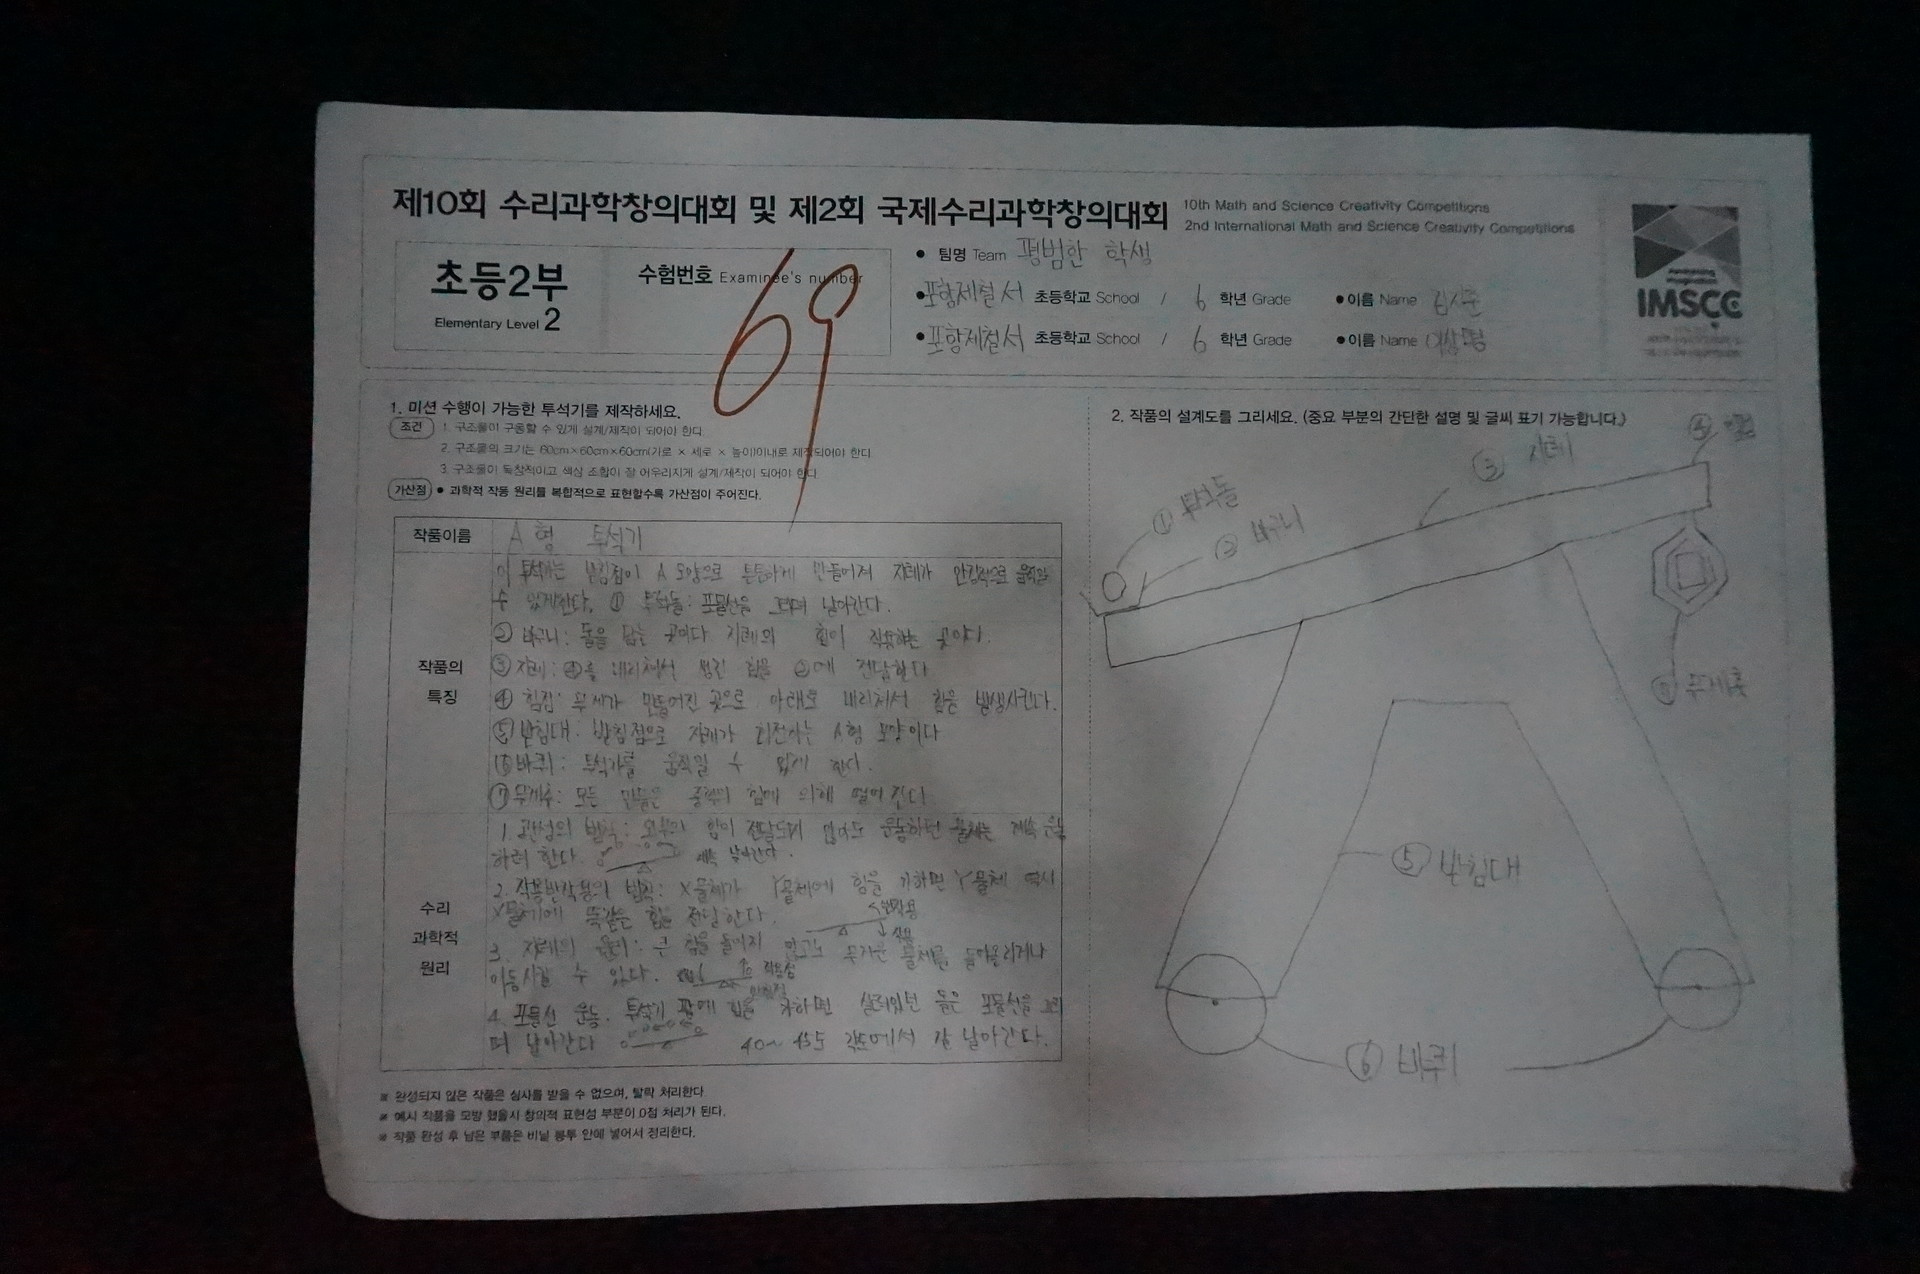 제10회 수리과학창의대회 및 제2회 국제수리과학창의대회
10th Math and Science Creativity Competitions
2nd International Math and Science Creativity Competitions
초등2부
Elementary Level 2
수험번호 Examinee's number
69
• 팀명 Team 평범한 학생
• 포항제철서 초등학교 School / 6 학년 Grade • 이름 Name
• 포항제철서 초등학교 School / 6 학년 Grade • 이름 Name
IMSCC
1. 미션 수행이 가능한 투석기를 제작하세요.
조건 1. 구조물이 구동할 수 있게 설계/제작이 되어야 한다.
2. 구조물의 크기는 60cm×60cm×60cm(가로 × 세로 × 높이)이내로 제작되어야 한다.
3. 구조물이 독창적이고 색상 조합이 잘 어우러지게 설계/제작이 되어야 한다.
가산점 • 과학적 작동 원리를 복합적으로 표현할수록 가산점이 주어진다.
작품이름
A형 투석기
작품의
특징
이 투석기는 받침점이 A 모양으로 튼튼하게 만들어져 지레가 안정적으로 움직일
수 있게한다. ① 투석돌: 포물선을 그리며 날아간다.
② 바구니: 돌을 담는 곳이다 지레의 힘이 작용하는 곳이다.
③ 지레: ④을 내리쳐서 생긴 힘을 ②에 전달한다
④ 힘점: 무게가 만들어진 곳으로 아래로 내리쳐서 힘을 발생시킨다.
⑤ 받침대: 받침점으로 지레가 회전하는 A형 모양이다
⑥ 바퀴: 투석기를 움직일 수 있게 한다.
⑦ 무게추: 모든 만물은 중력의 힘에 의해 떨어진다.
수리
과학적
원리
1. 관성의 법칙: 외부의 힘이 전달되지 않아도 운동하던 물체는 계속 운동
하려 한다. 계속 날아간다.
2. 작용반작용의 법칙: X물체가 Y물체에 힘을 가하면 Y물체 역시
X물체에 똑같은 힘을 전달한다. 반작용
작용
3. 지레의 원리: 큰 힘을 들이지 않고도 무거운 물체를 들어올리거나
이동시킬 수 있다. 작용점
받침점
4. 포물선 운동: 투석기 팔에 힘을 가하면 실려있던 돌은 포물선을 그리
며 날아간다 40~45도 각도에서 잘 날아간다.
※ 완성되지 않은 작품은 심사를 받을 수 없으며, 탈락 처리한다.
※ 예시 작품을 모방 했을시 창의적 표현성 부분이 0점 처리가 된다.
※ 작품 완성 후 남은 부품은 비닐 봉투 안에 넣어서 정리한다.
2. 작품의 설계도를 그리세요. (중요 부분의 간단한 설명 및 글씨 표기 가능합니다.)
④ 힘점
③ 지레
① 투석돌
② 바구니
무게추
⑤ 받침대
⑥ 바퀴